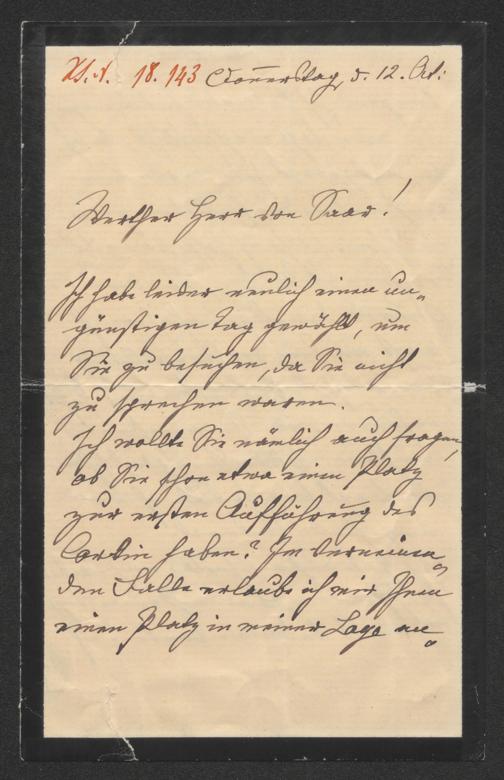 H.I.N. 18.143 Donnerstag, d. 12. Oct:
Werther Herr von Saar!
Ich habe leider neulich einen un-
günstigen Tag gewählt, um
Sie zu besuchen, da Sie nicht
zu sprechen waren.
Ich wollte Sie nämlich auch fragen,
ob Sie schon etwa einen Platz
zur ersten Aufführung des
haben? Im verneinen-
den Falle erlaube ich mir Ihnen
einen Platz in meiner Loge an-